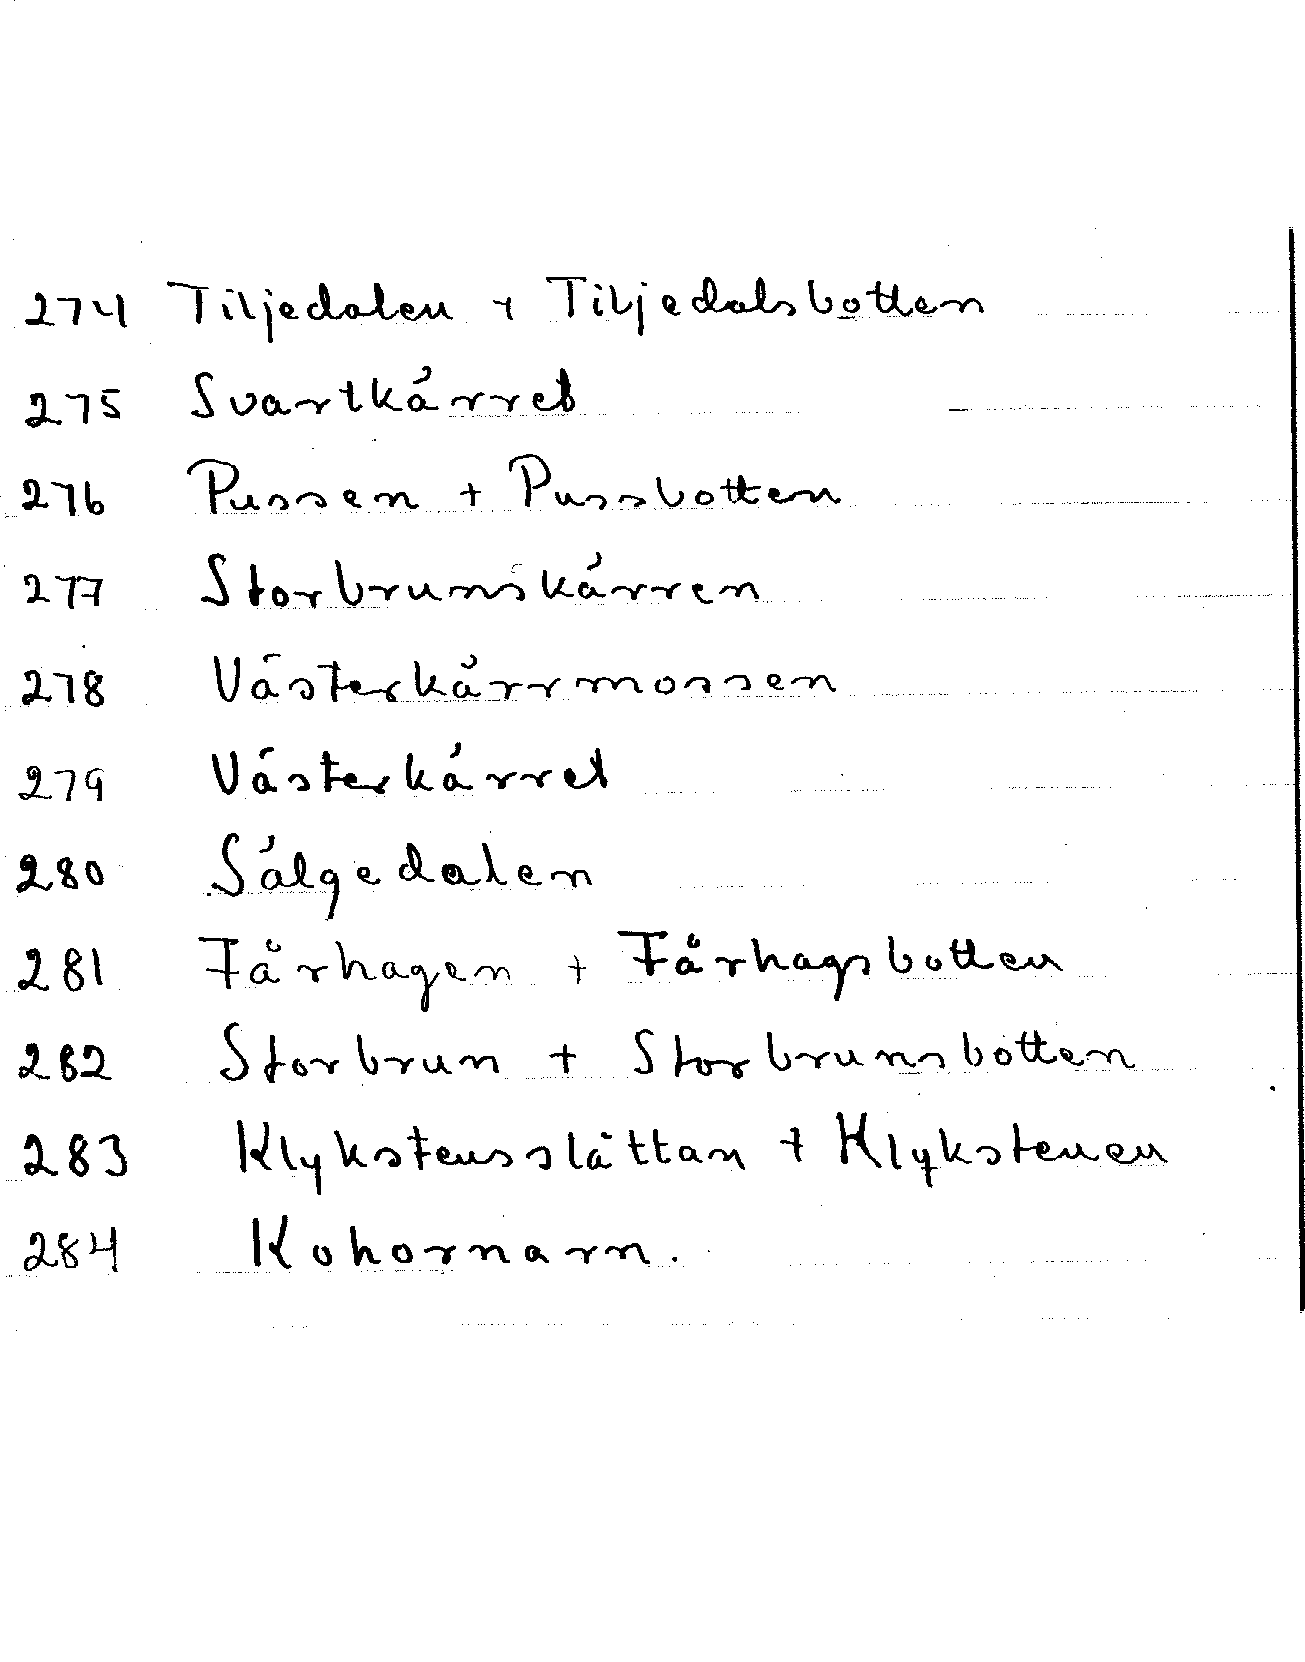 274 Tiljedalen + Tiljedalsbotten
275 Svartkärret
276 Pussen + Pussbotten
277 Storbrunskärren
278 Västerkärrmossen
279 Västerkärret
280 Sälgedalen
281 Fårhagen + Fårhagsbotten
282 Storbrun + Storbrunsbotten
283 Klykstensslättan + Klykstenen
284 Kohornarn.